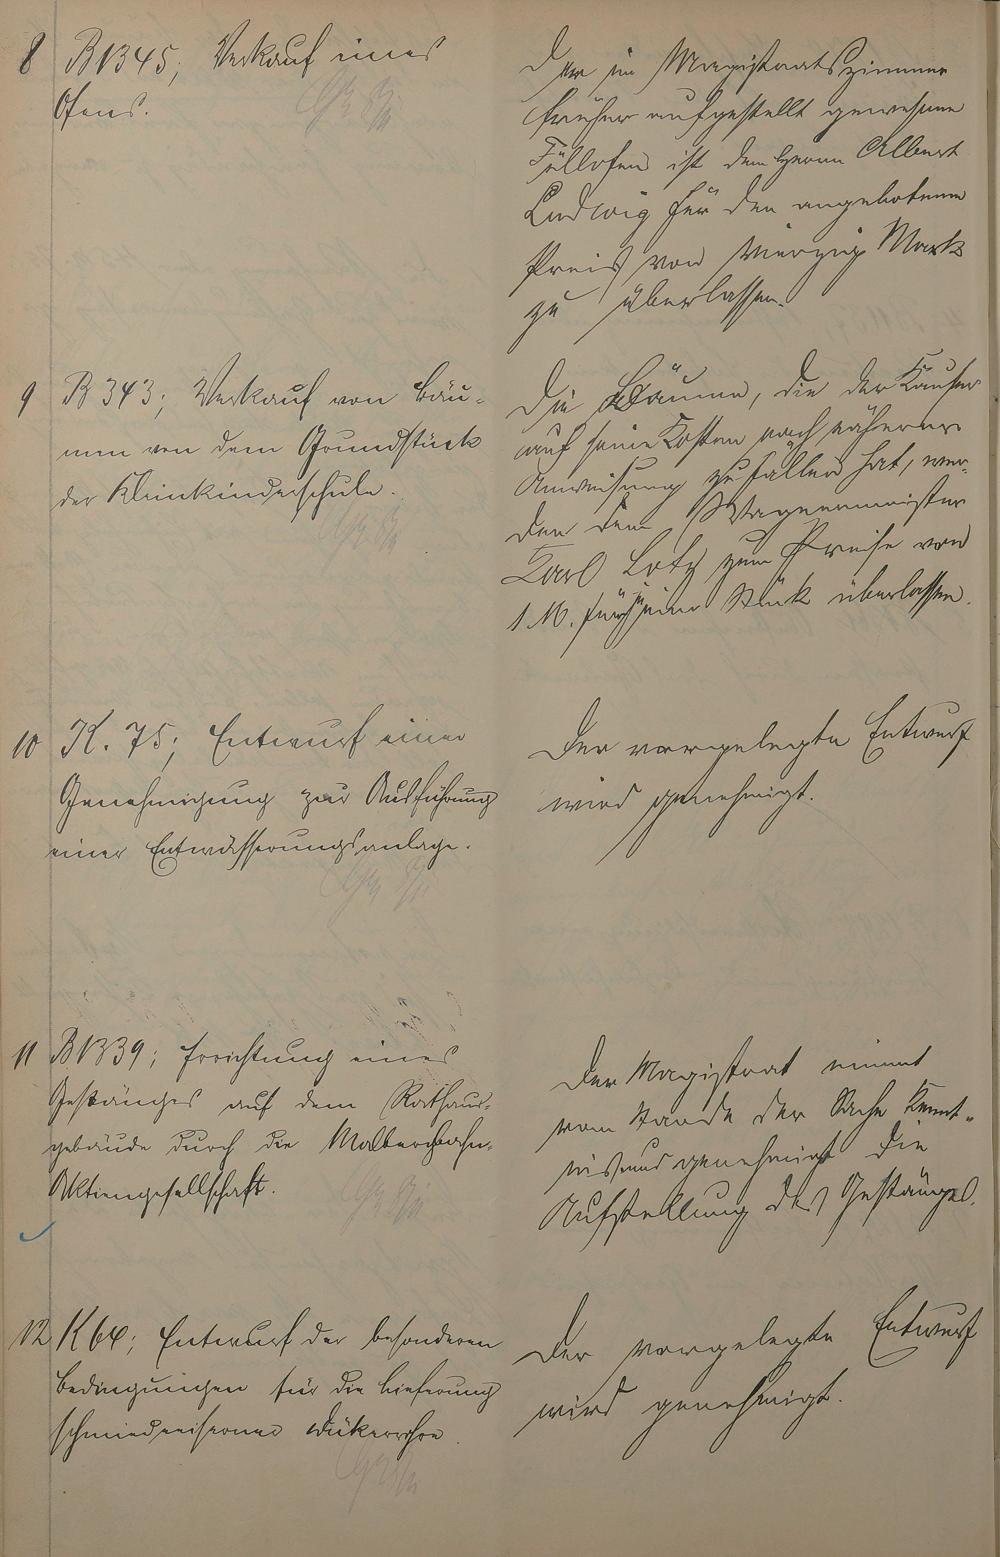 8 B 1345; Verkauf eines
Ofens.
Der im Magistratszimmer
früher aufgestellt gewesene
Füllofen ist dem Herrn Albert
Ludwig für den angebotenen
Preis von vierzig Mark
zu überlassen.
9 B 343; Verkauf von Bäu-
men von dem Grundstück
der Kleinkinderschule.
Die Bäume, die der Käufer
auf seine Kosten nach näherer
Anweisung zu fällen hat, wer-
den dem Wagnermeister
Karl Lotz zum Preise von
1 M. für je ein Stück überlassen.
10 K. 75; Entwurf einer
Genehmigung zur Ausführung
einer Entwässerungsanlage.
Der vorgelegte Entwurf
wird genehmigt.
11 B 1339; Errichtung eines
Gestänges auf dem Rathaus-
gebäude durch die Malbergbahn-
Aktiengesellschaft.
Der Magistrat nimmt
vom Stande der Sache Kennt-
nis und genehmigt die
Aufstellung des Gestänges.
12 K 64; Entwurf der besonderen
Bedingungen für die Lieferung
schmiedeeiserner Dükerrohre.
Der vorgelegte Entwurf
wird genehmigt.